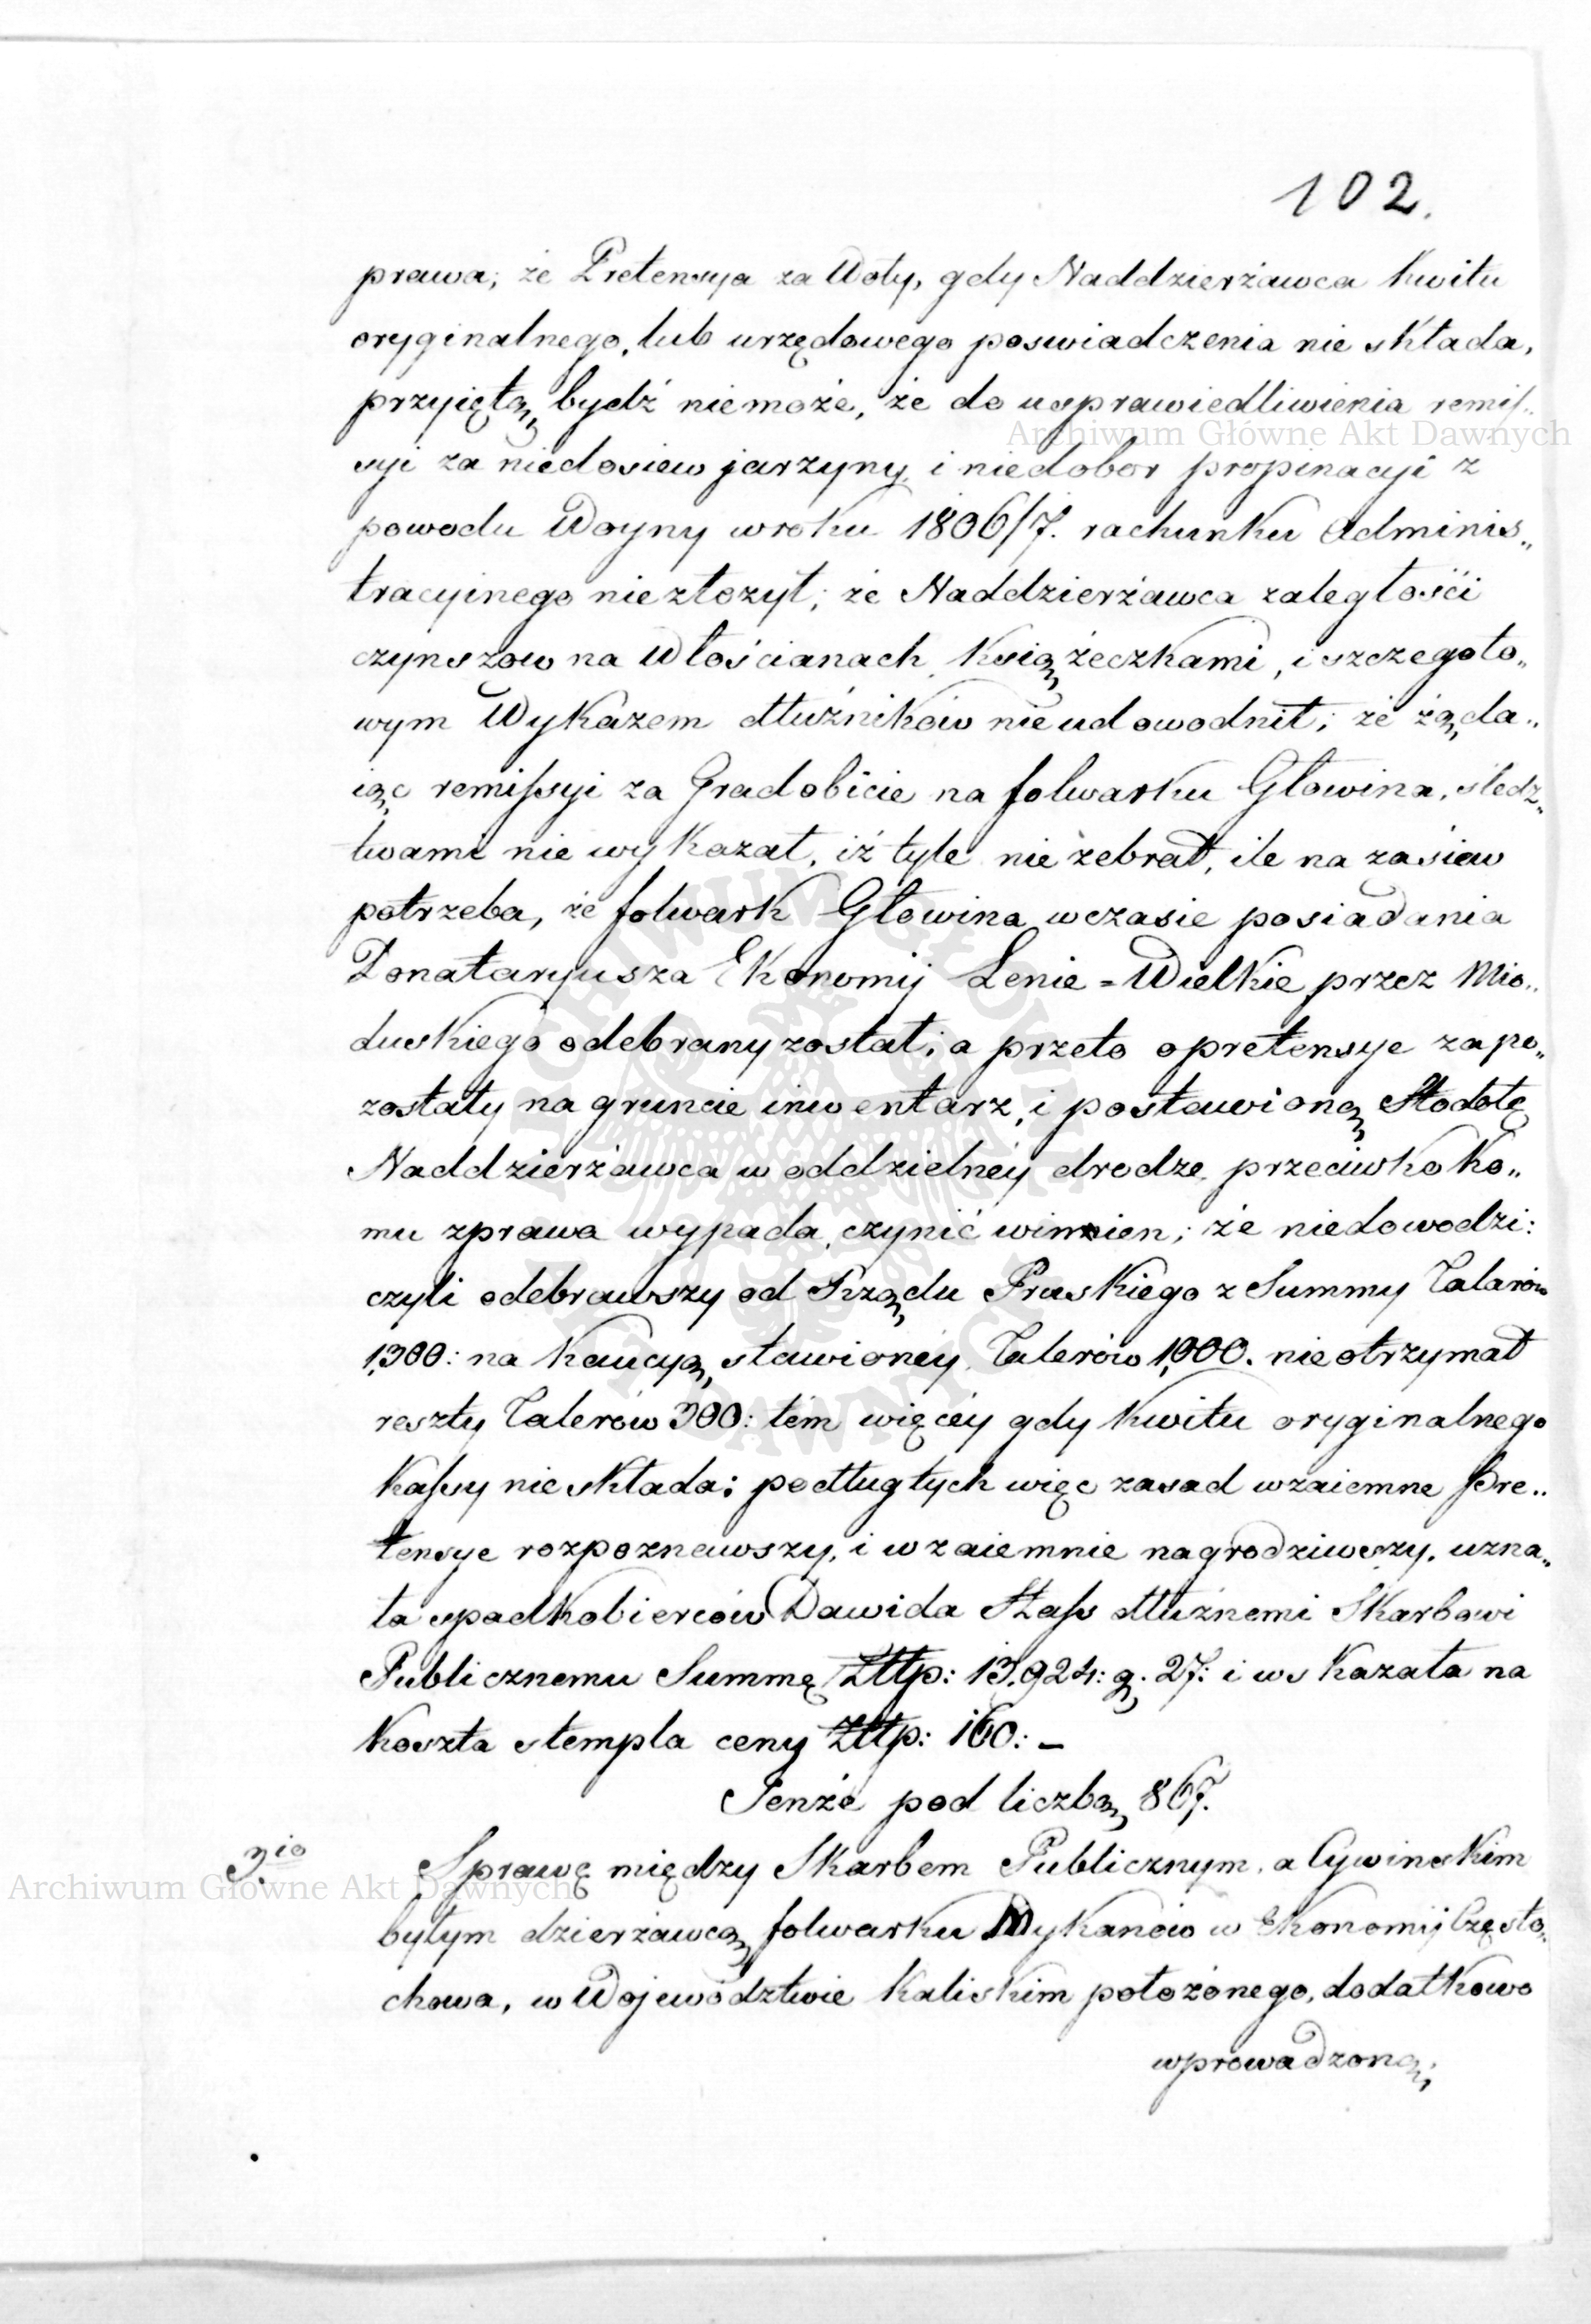 102.
prawa; że Pretensya za Woły, gdy Naddzierżawca kwitu
oryginalnego, lub urzędowego poswiadczenia nie składa,
przyiętą bydź niemoże, że do usprawiedliwienia remis„
syi za niedosiew jarzyny i niedobor propinacyi z
powodu Woyny wroku 1806/7. rachunku Adminis„
tracyinego niezłożył; że Naddzierżawca zaległości
czynszow na Włościanach książeczkami, i szczegoło„
wym Wykazem dłużników nieudowodnił; że żąda„
iąc remissyi za Gradobicie na folwarku Głowina, sledz„
twami nie wykazał, iż tyle nie zebrał, ile na zasiew
potrzeba, że folwark Głowina wczasie posiadania
Donataryusza Ekonomij Lenie=Wielkie przez Mio„
duskiego odebrany został; a przeto opretensye zapo„
zostały na gruncie inwentarz, i postawioną Stodołę
Naddzierżawca w oddzielnéy drodze przeciwko ko„
mu zprawa wypada, czynić winien; że niedowodzi:
czyli odebrawszy od Rządu Pruskiego z Summy Talarów
1,300: na kaucyą stawionéy Talerów 1,000. nieotrzymał
reszty Talerów 300: tém więcéy gdy kwitu oryginalnego
Kassy nie składa; podług tych więc zasad wzaiemne Pre„
tensye rozpoznawszy, i wzaiemnie nagrodziwszy, uzna„
ła spadkobierców Dawida Stass dłużnemi Skarbowi
Publicznemu Summę Złtp: 13,924: g. 27: i wskazała na
koszta stempla ceny Złtp: 160: –
Tenże pod liczbą 867.
3io Sprawę między Skarbem Publicznym, a Cywinskim
byłym dzierżawcą folwarku Mykanów w Ekonomij Często„
chowa, w Województwie Kaliskim położonego, dodatkowo
wprowadzoną;
Archiwum Główne Akt Dawnych
Archiwum Główne Akt Dawnych
ARCHIWUM GŁÓWNE AKT DAWNYCH